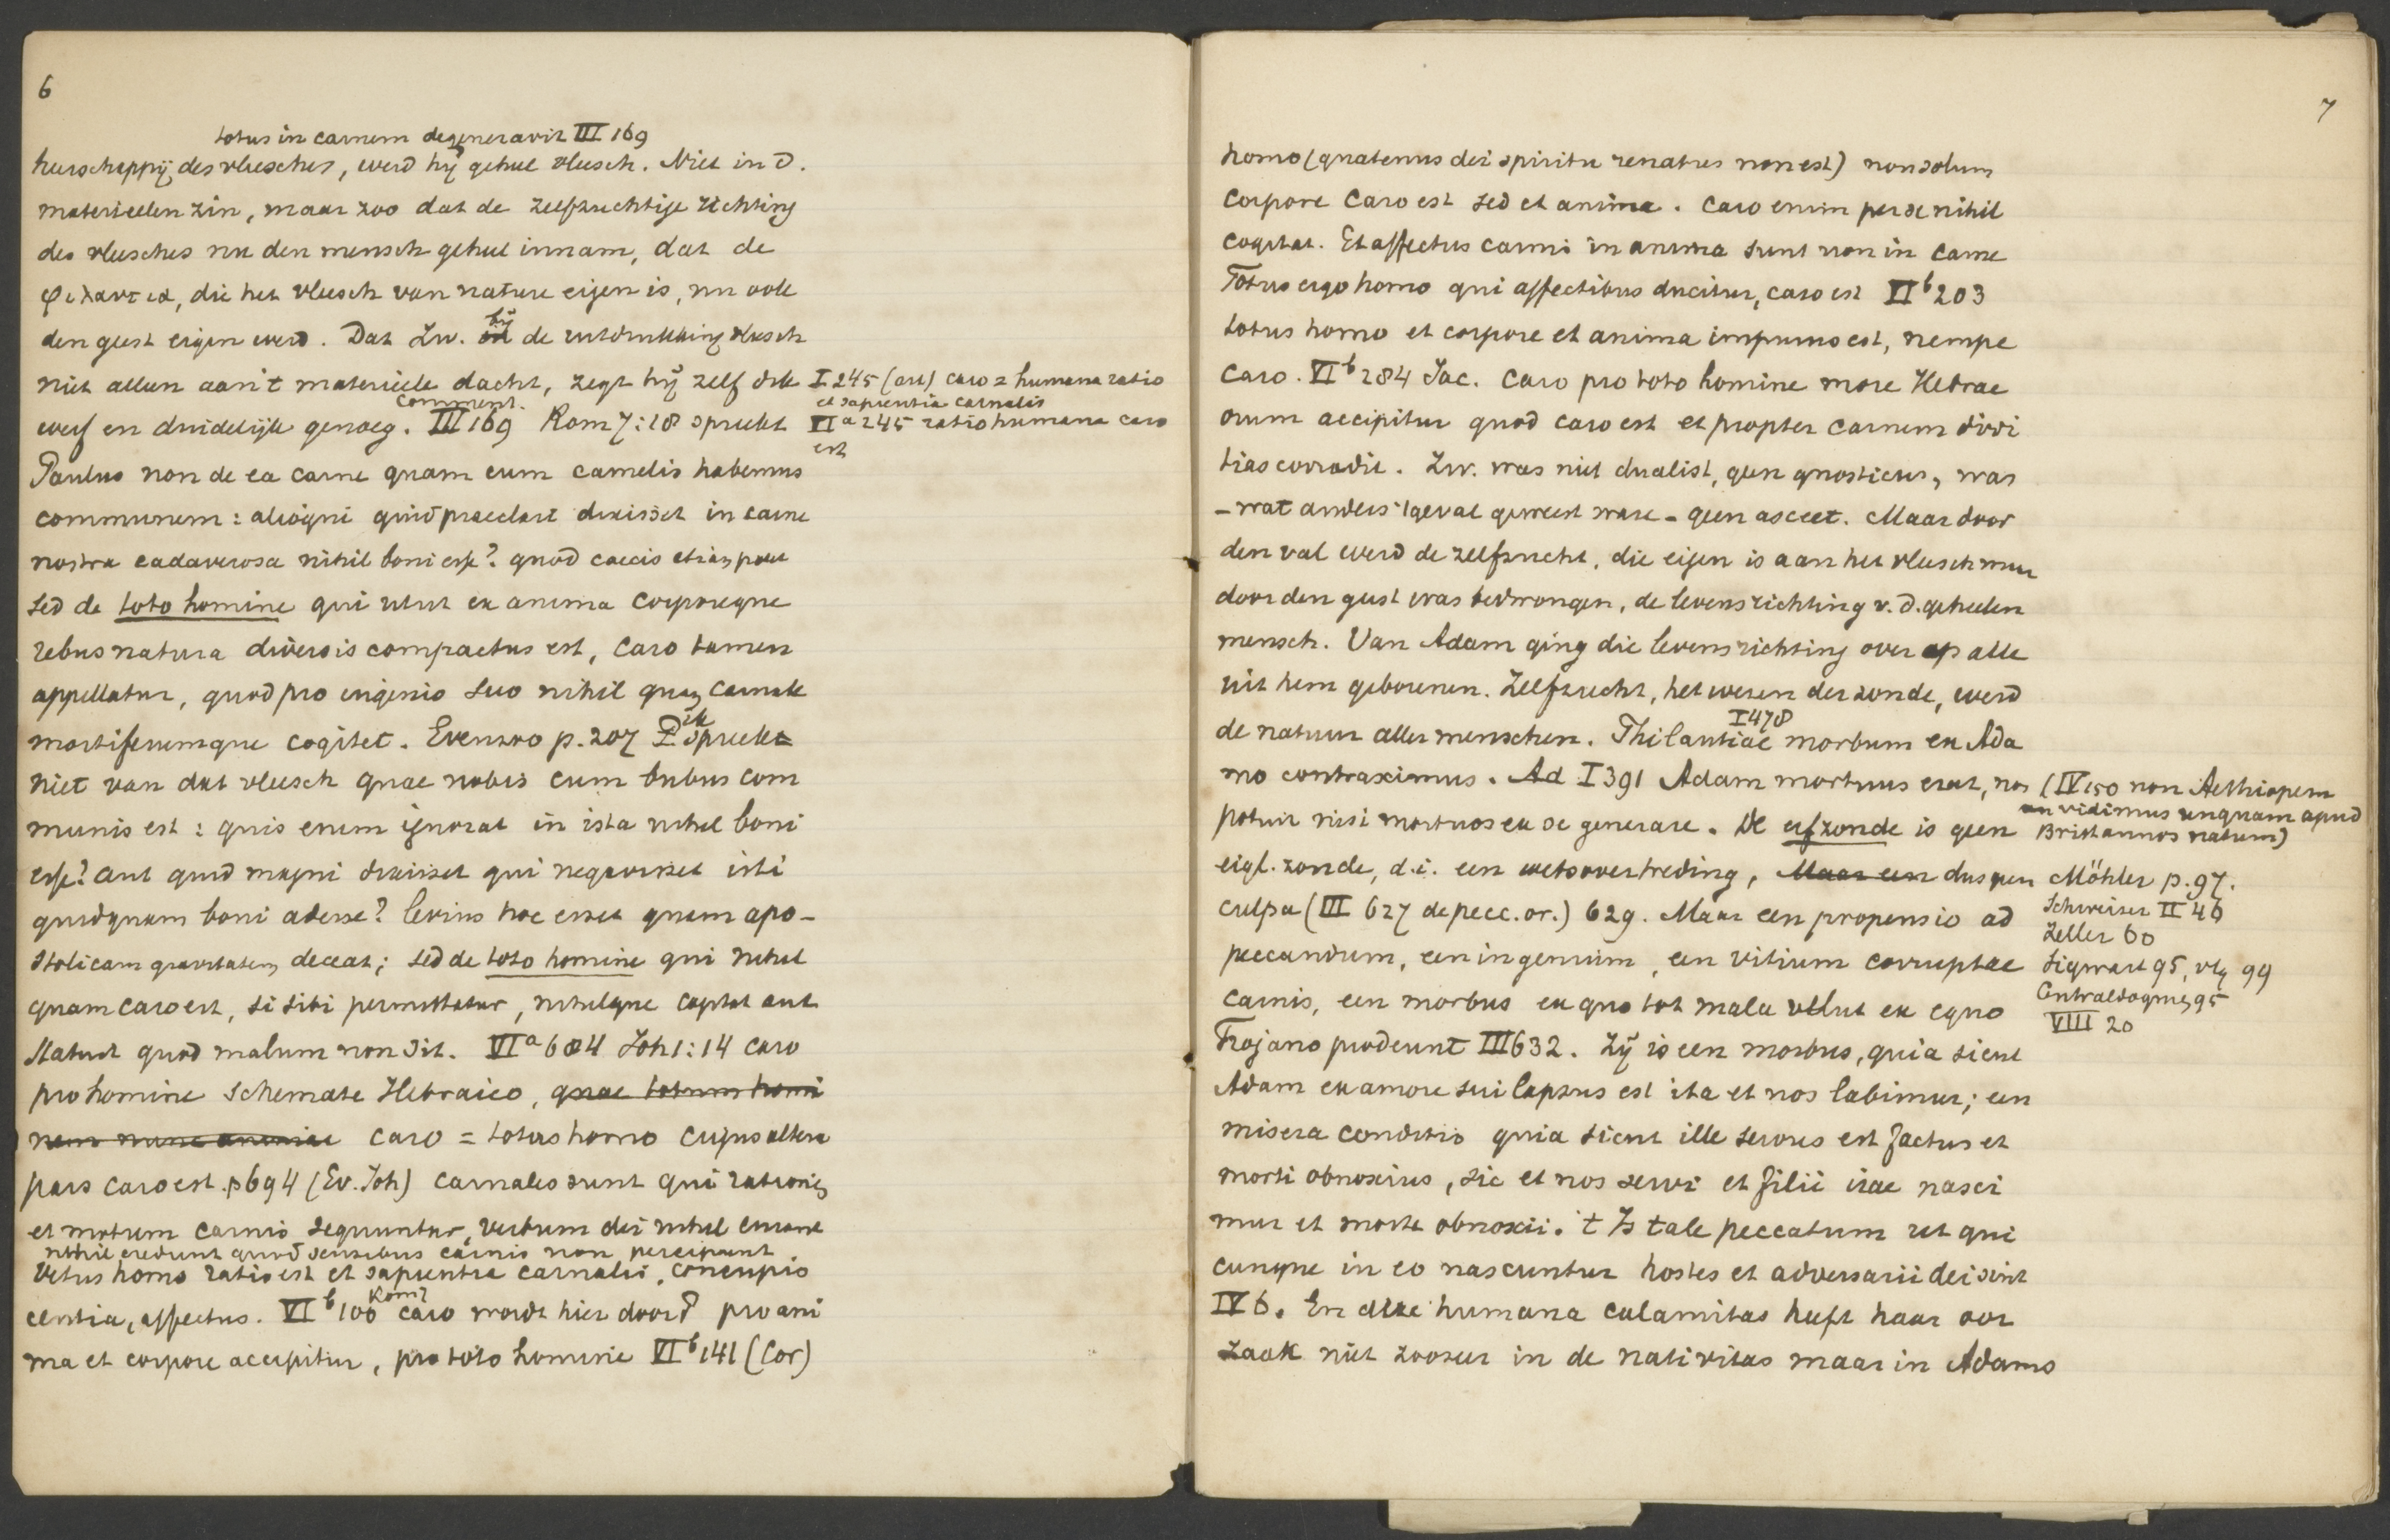 6
totus in carnem degeneravit III 169
heerschappij des vleesches, werd hij geheel vleesch. Niet in d.
materieelen zin, maar zoo dat de zelfzuchtige richting
des vleesches nu den mensch geheel innam, dat de
φιλαυτια, die het vleesch van nature eigen is, nu ook
den geest eigen werd. Dat Zw. bij de uitdrukking vleesch
niet alleen aan 't materieele dacht, zegt hij zelf dik
comment.
werf en duidelijk genoeg. III 169 Rom 7:18 spreekt
Paulus non de ea carne quam cum camelis habemus
communem: alioqui quid praeclari dixisset in carne
nostra cadaverosa nihil boni esse? quod caecis etiam patet
sed de toto homine qui utut ex anima corporeque
rebus natura diversis compactus est, caro tamen
appellatur, quod pro ingenio suo nihil quam carnale
mortiferumque cogitet. Evenzoo p. 207 P. spreekt
niet van dat vleesch quae nobis cum bubus com
munis est: quis enim ignorat in ista nihil boni
esse? aut quid magni dixisset qui negavisset isti
quidquam boni adesse? levius hoc esset quam apo-
stolicam gravitatem deceat; sed de toto homine qui nihil
quam caro est, si sibi permittatur, nihilque captat aut
statuit quod malum non sit. VI a 684 Joh 1:14 caro
pro homine schemate Hebraico, quae totum homi
nem nunc animae caro = totus homo cujus altera
pars caro est. p 694 (Ev. Joh) carnales sunt qui rationem
et motum carnis sequuntur, verbum dei nihil curant
nihil credunt quod sensibus carnis non percipiunt
Vetus homo ratio est et sapientia carnalis, concupis
centia, affectus. VI b 100 Rom 7 caro wordt hier door P pro ani
ma et corpore accipitur, pro toto homine VI b 141 (Cor)
I 245 (art) caro = humana ratio
et sapientia carnalis
VI a 245 ratio humana caro
est
7
homo (quatenus dei spiritu renatus non est) non solum
corpore caro est sed et anima. Caro enim per se nihil
cogitat. Et affectus carnis in anima sunt non in carne
Totus ergo homo qui affectibus ducitur, caro est VI b 203
totus homo et corpore et anima impurus est, nempe
caro. VI b 284 Jac. Caro pro toto homine more Hebrae
orum accipitur quod caro est et propter carnem divi
tias corradit. Zw. was niet dualist, geen gnosticus, was
- wat anders 't geval geweest ware - geen asceet. Maar door
den val werd de zelfzucht, die eigen is aan het vleesch maar
door den geest was bedwongen, de levensrichting v. d. geheelen
mensch. Van Adam ging die levensrichting over op alle
uit hem geborenen. Zelfzucht, het wezen der zonde, werd
I 478
de natuur aller menschen. Philautiae morbum ex Ada
mo contraximus. Ad I 391 Adam mortuus erat, nos
potuit nisi mortuos ex se generare. De erfzonde is geen
eigl. zonde, d.i. een wetsovertreding, Maar een dus geen
culpa (III 627 de pecc. or.) 629. Maar een propensio ad
peccandum, een ingenium, een vitium corruptae
carnis, een morbus ex quo tot mala velut ex equo
Trojano prodeunt III 632. Zij is een morbus, quia sicut
Adam ex amore sui lapsus est ita et nos labimur; een
misera conditio quia sicut ille servus est factus et
morti obnoxius, sic et nos servi et filii irae nasci
mur et morte obnoxii. 't Is tale peccatum ut qui
cunque in eo nascuntur hostes et adversarii dei sint
IV 6. En deze humana calamitas heeft haar oor
zaak niet zoozeer in de nativitas maar in Adams
(IV 150 non Aethiopem
vidimus unquam apud
Britannos natum)
Möhler p. 97.
Schweizer II 46
Zeller 60
Sigwart 95, vlg 99
Centraldogmen 95
VIII 20